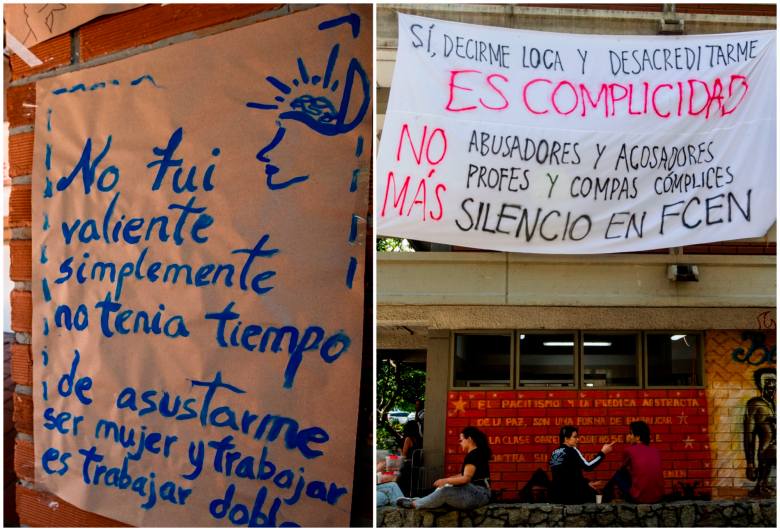 No fui
valiente
simplemente
no tenia tiempo
de asustarme
ser mujer y trabajar
es trabajar doble
SÍ, DECIRME LOCA Y DESACREDITARME
ES COMPLICIDAD
NO MÁS
ABUSADORES Y ACOSADORES
PROFES Y COMPAS CÓMPLICES
SILENCIO EN FCEN
EL PACIFISMO Y LA PREDICA ABSTRACTA
DE LA PAZ, SON UNA FORMA DE
LA CLASE